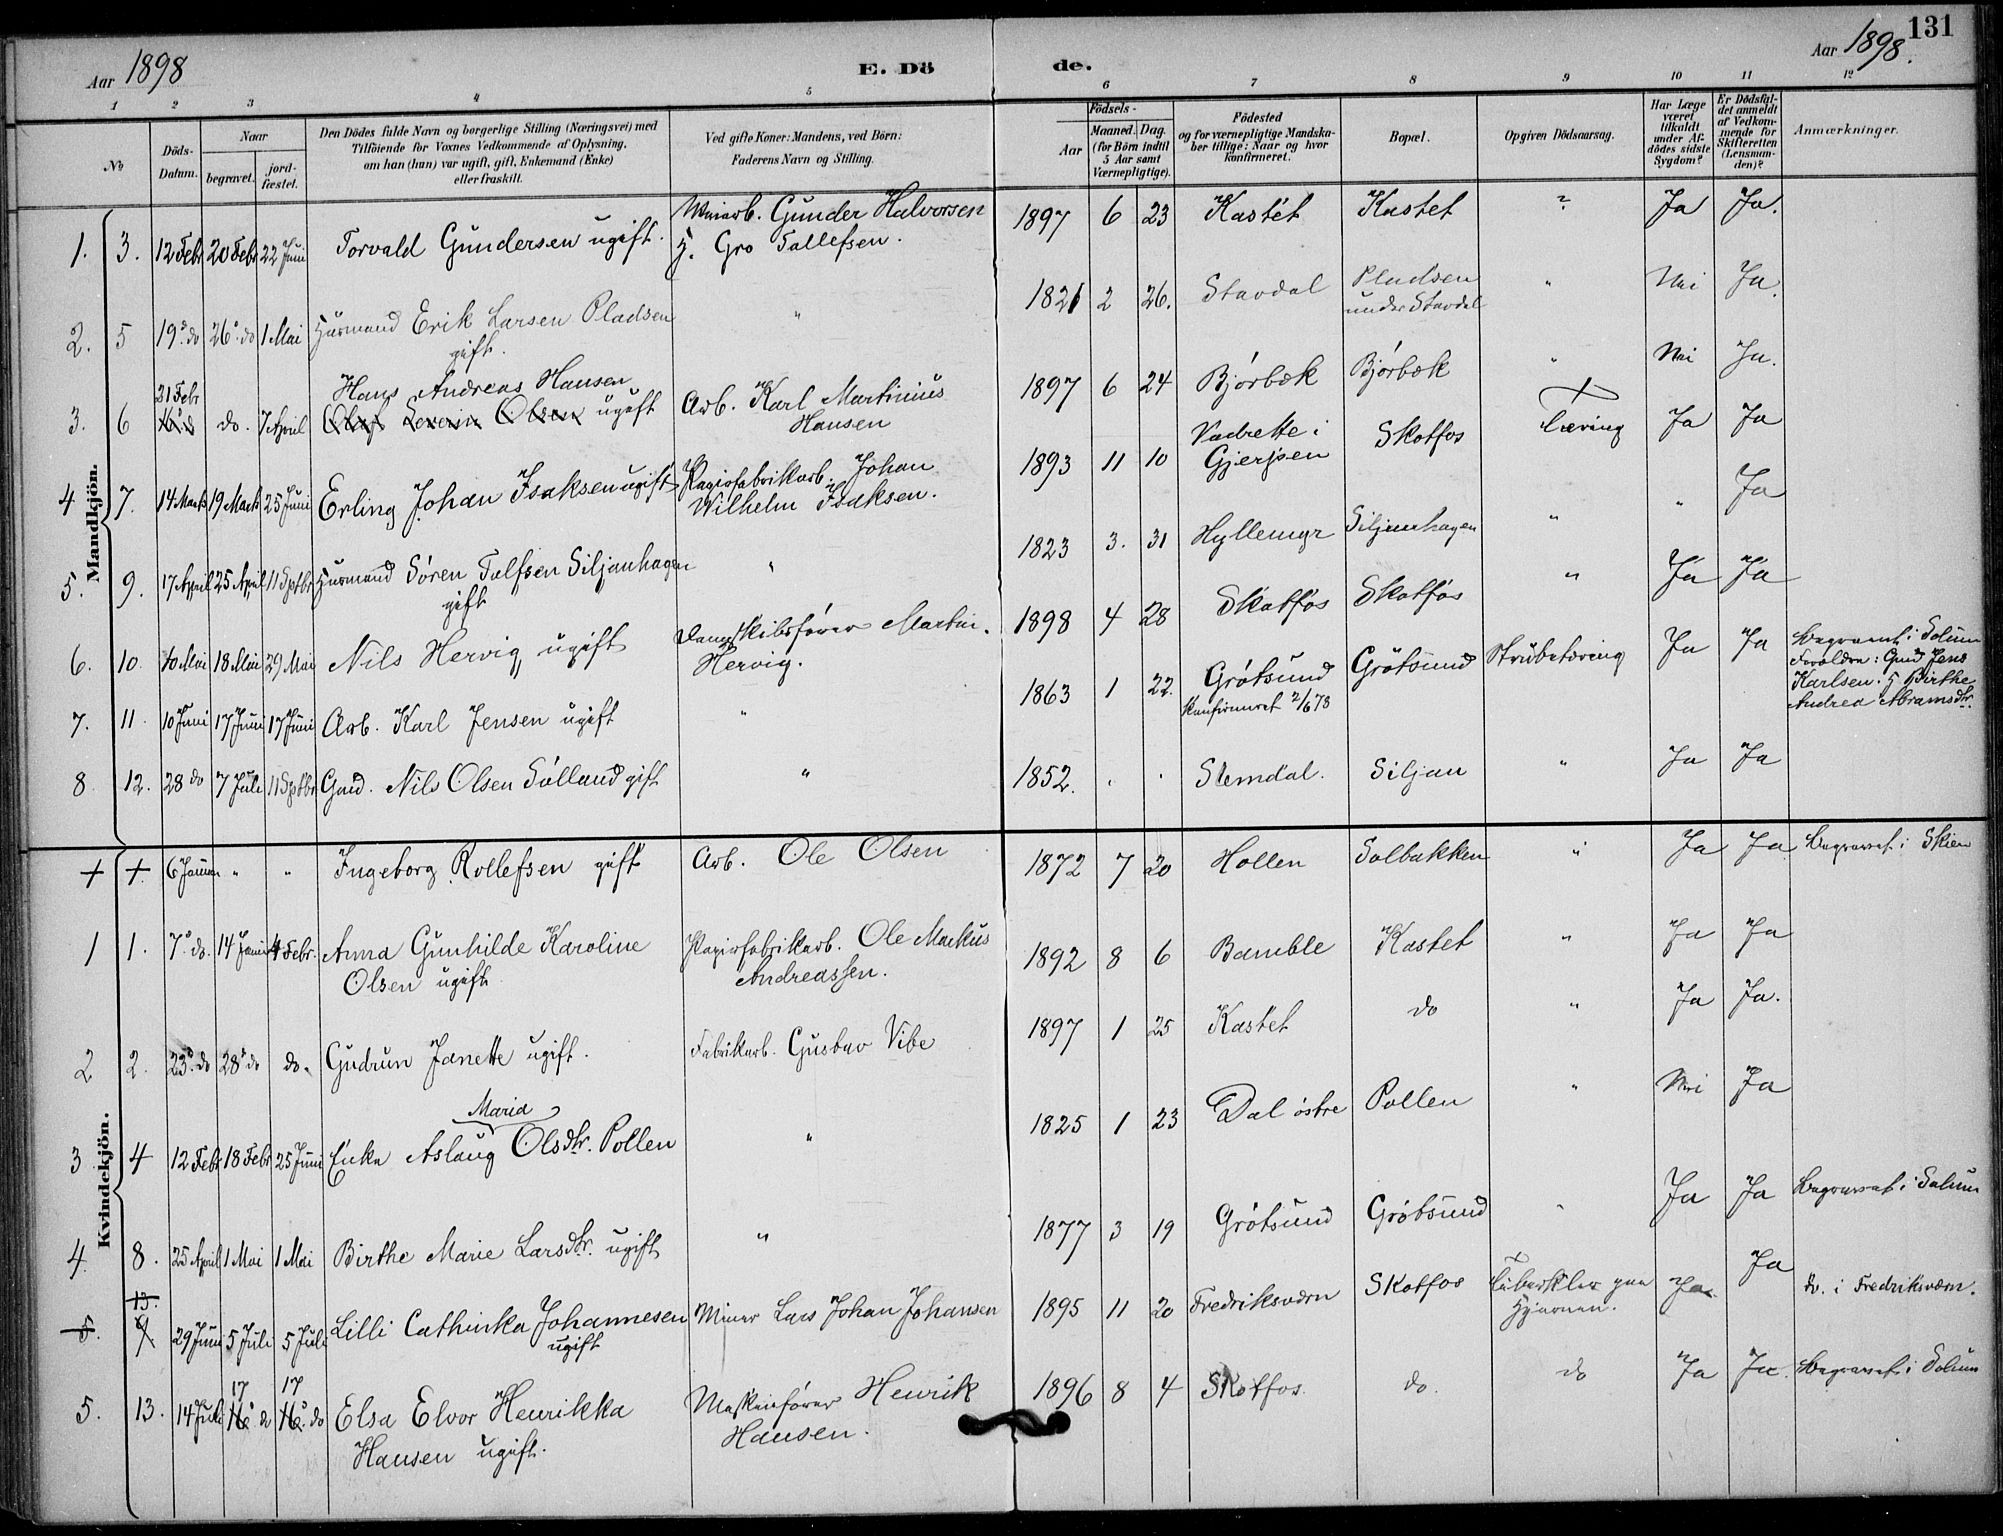 131
Aar 1898
E. Dö
de.
Aar 1898.
1 2 3 4 5
6 7 8 9 10 11 12
No
Döds-Datum.
Naar
begravet.
jord-fæstet.
Den Dödes fulde Navn og borgerlige Stilling (Næringsvei) med
Tilföiende for Voxnes Vedkommende af Oplysning,
om han (hun) var ugift, gift, Enkemand (Enke)
eller fraskilt.
Ved gifte Koner: Mandens, ved Börn:
Faderens Navn og Stilling.
Födsels-
Aar
Maaned. Dag.
(for Børn indtil
5 Aar samt
Værnepligtige).
Födested
og for værnepligtige Mandska-
ber tillige: Naar og hvor
konfirmeret.
Bopæl.
Opgiven Dödsaarsag.
Har Læge
været
tilkaldt
under Af-
dödes sidste
Sygdom?
Er Dödsfal-
det anmeldt
af Vedkom-
mende for
Skifteretten
(Lensman-
den)?
Anmærkninger.
Mandkjön.
1. 3. 12 Febr 20 Febr 22 Juni Torvald Gundersen ugift. Gunder Halvorsen
H. Gro Tollefsen. 1897 6 23 Kastet Kastet ? Ja Ja.
2. 5 19 do 26 do 1 Mai Husmand Erik Larsen Pladsen
gift. " 1821 2 26. Stavdal Pladsen
under Stavdal " Nei Ja.
3. 6 21 Febr do. 7 April Hans Andreas Hansen
Olaf Severin Olsen ugift Arb. Karl Martinius
Hansen 1897 6 24 Bjørbæk Bjørbæk " Nei Ja.
4 7. 14 Marts 19 Marts 25 Juni Erling Johan Isaksen ugift Papirfabrikarb. Johan
Wilhelm Isaksen. 1893 11 10 Vadrette i
Gjerpen Skotfos Tæring Ja Ja
5. 9. 17 April 25 April 11 Septbr Husmand Sören Tolfsen Siljanhagen
gift " 1823 3. 31 Hyllemyr Siljanhagen " " Ja
6. 10. 10 Mai 18 Mai 29 Mai Nils Hervig, ugift Dampskibsfører Martin
Hervig. 1898 4 28 Skotfos Skotfos " Ja Ja
7. 11. 10 Juni 17 Juni 17 Juni Arb. Karl Jensen ugift " 1863 1 22. Grøtsund
Konfirmeret 2/6 78 Grøtsund Strubetæring Ja Ja Begravet i Solum
Forældre: Gmd Jens
Karlsen. H Birthe
Andrea Abramsdtr.
8 12. 28 do 7 Juli 11 Septbr Gmd. Nils Olsen Sølland gift " 1852. Slemdal. Siljan " Ja Ja
Kvindekjön.
+ +. 6 Januar " " Ingeborg Rollefsen gift Arb. Ole Olsen 1872 7 20 Hollen Solbakken " Ja Ja Begravet i Skien
1 1. 7 do. 14 Januar 4 Febr. Anna Gunhilde Karoline
Olsen ugift Papirfabrikarb. Ole Markus
Andreassen. 1892 8 6 Bamble Kastet " Ja Ja
2 2. 23 do 28 do do. Gudrun Janette ugift. Fabrikarb. Gustav Vibe 1897 1 25 Kastet do " Ja Ja.
3 4 12 Febr 18 Febr 25 Juni Enke Aslaug Maria Olsdtr. Pollen " 1825 1 23 Dal østre Pollen " Nei Ja
4. 8. 25 April 1 Mai 1 Mai Birthe Marie Larsdtr. ugift " 1877 3 19 Grøtsund Grøtsund " Ja Ja Begravet i Solum
5. 13. 9. 29 Juni 5 Juli 5 Juli Lilli Cathinka Johannesen
ugift Minør Lars Johan Johansen 1895 11 20 Fredriksværn Skotfos Tuberkler paa
Hjernen. Ja Ja do. i Fredriksværn.
5. 13. 14 Juli 17 16 do 17 16 do Elsa Elvor Henrikka
Hansen ugift. Maskinfører Henrik
Hansen. 1896 8 4 Skotfos. do. do Ja Ja. Begravet i Solum